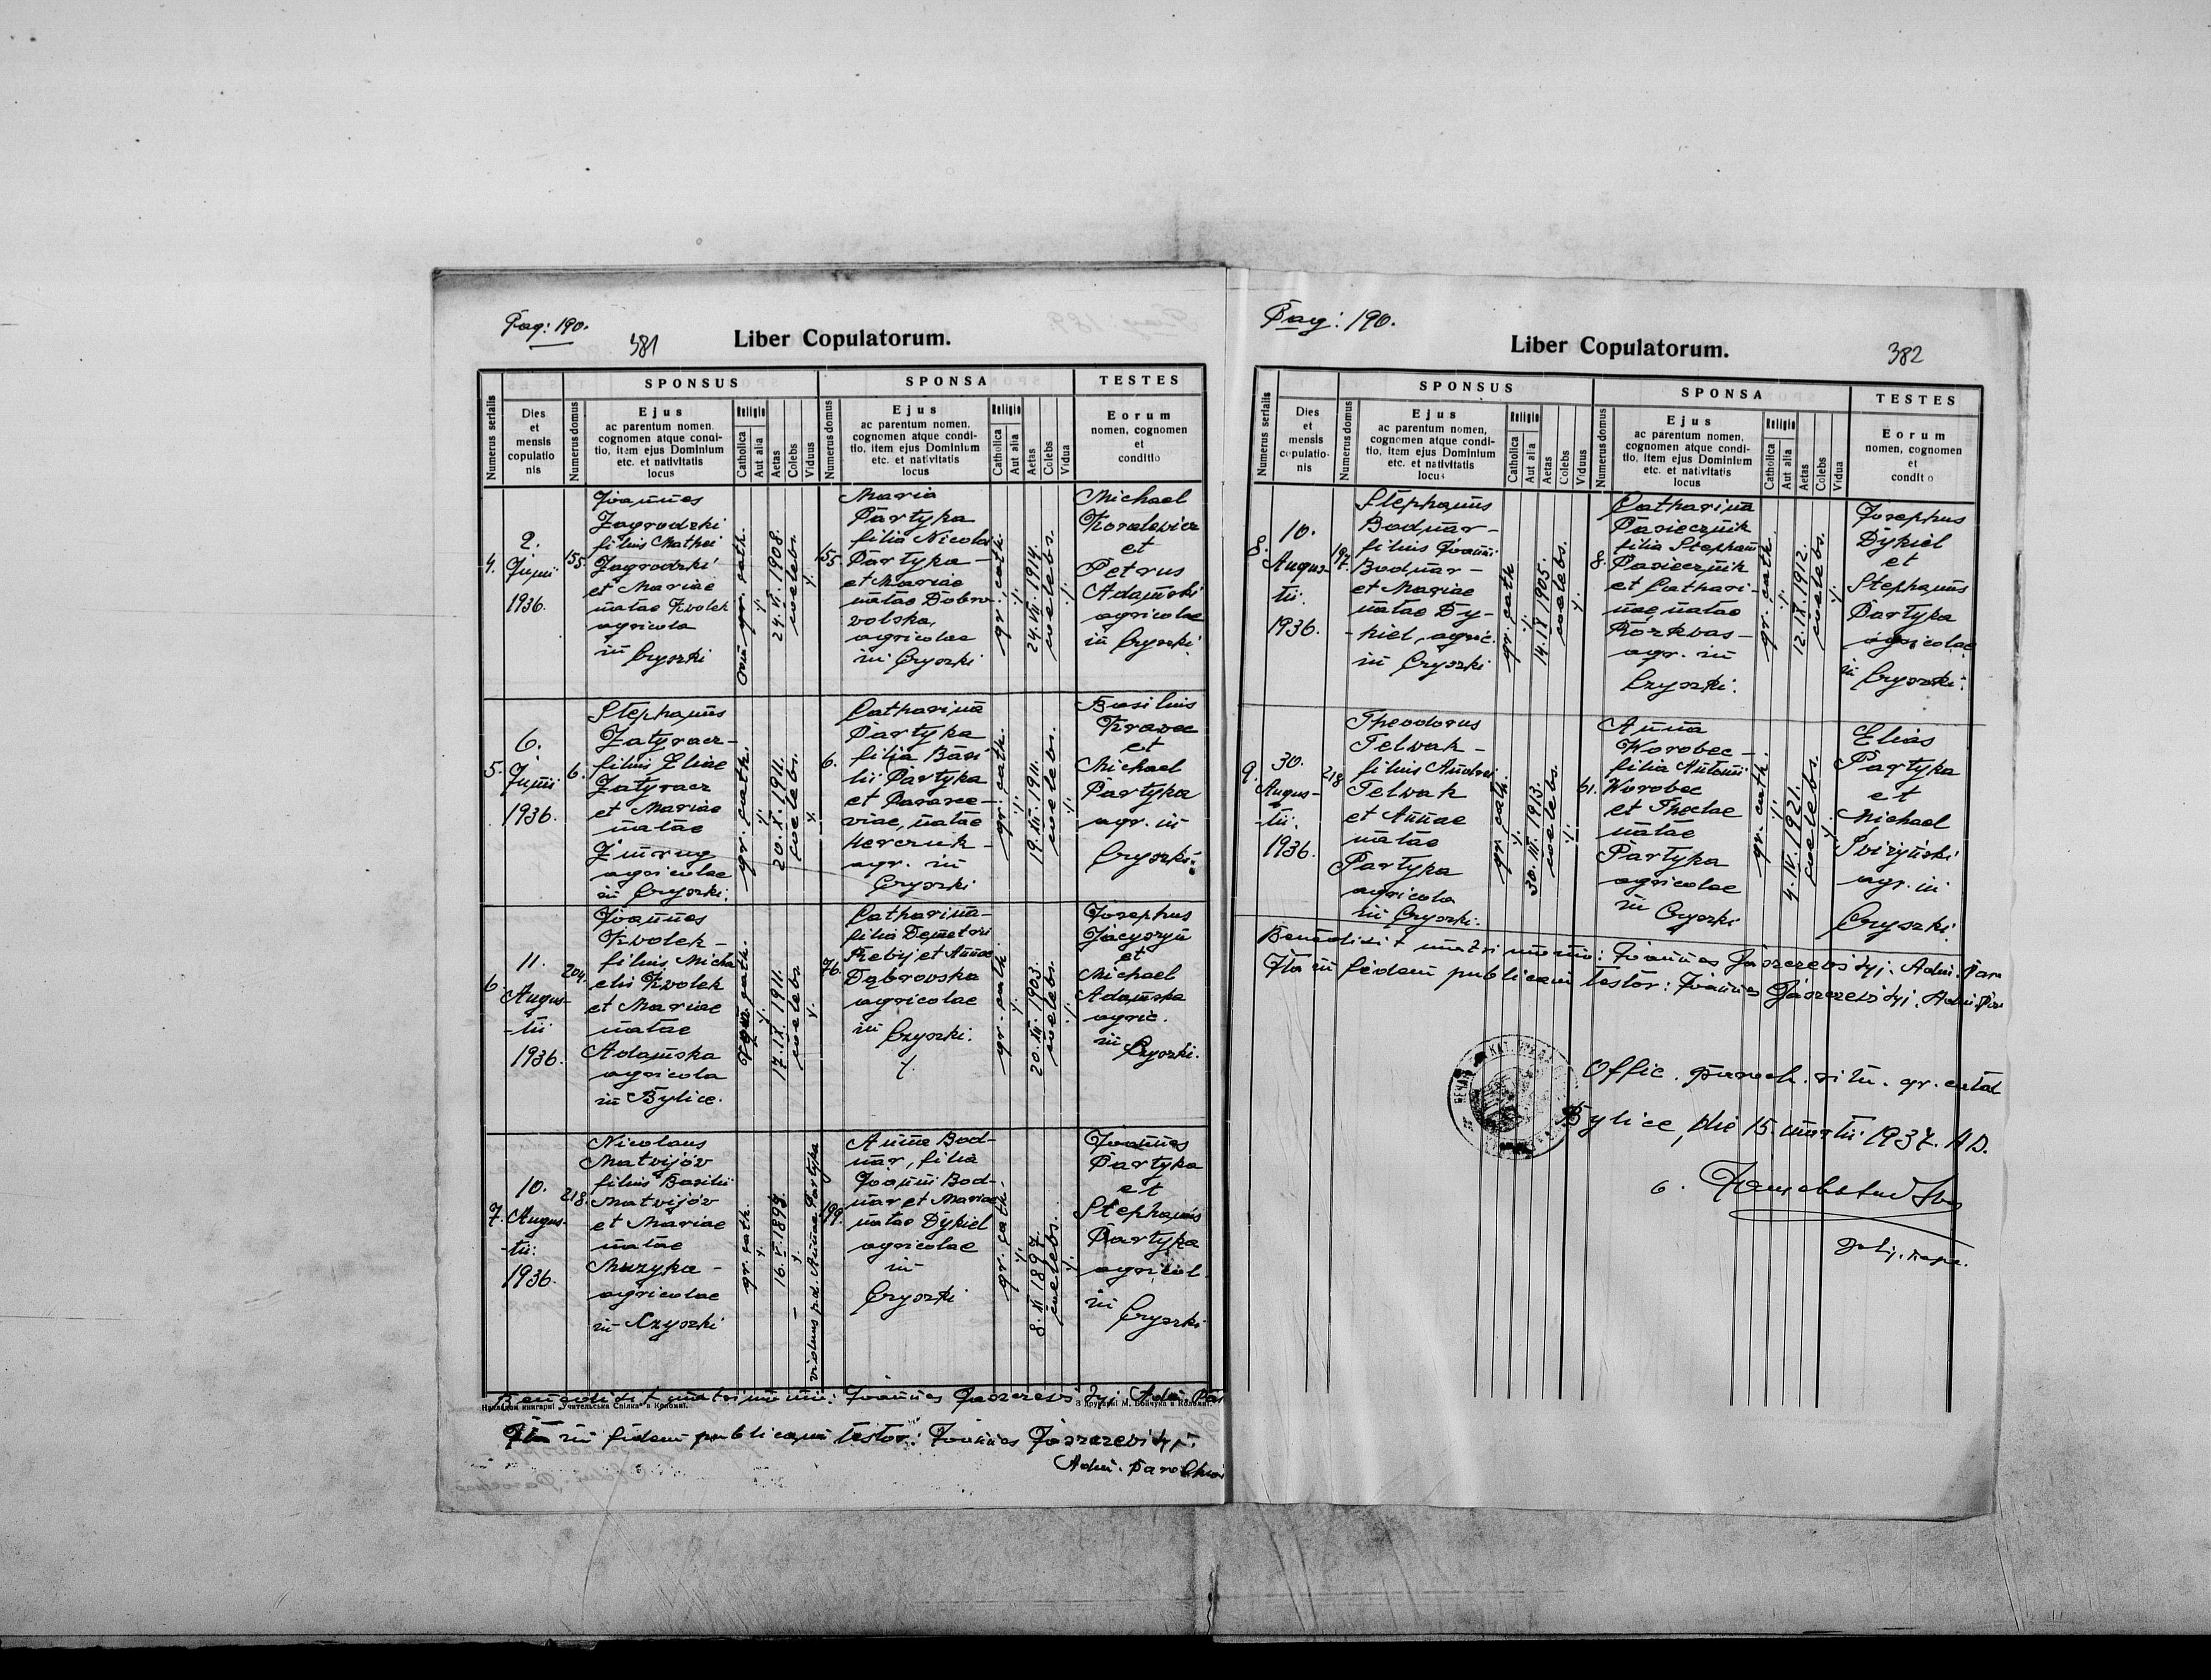 Pag: 190.
381
Liber Copulatorum.
Numerus serialis
Dies
et
mensis
copulatio
nis
Numerus domus
SPONSUS
Ejus
ac parentum nomen,
cognomen atque condi-
tio, item ejus Dominium
etc. et nativitatis
locus
Religio
Catholica
Aut alia
Aetas
Colebs
Viduus
Numerus domus
SPONSA
Ejus
ac parentum nomen,
cognomen atque condi-
tio, item ejus Dominium
etc. et nativitatis
locus
Religio
Catholica
Aut alia
Aetas
Colebs
Vidua
TESTES
Eorum
nomen, cognomen
et
conditio
4.
2.
Junii
1936.
155.
Joannes
Zagrodzki
filius Mathei
Zagrodzki
et Mariae
natae Kwolek
agricola
in Czyszki
gr. cath.
24. VI. 1908.
coelebs.
155.
Maria
Partyka
filia Nicolai
Partyka -
et Mariae
natae Dobro-
wolska,
agricolae
in Czyszki
gr. cath.
24. VII. 1914.
coelebs.
Michael
Kowalewicz
et
Petrus
Adamski
agricolae
in Czyszki
5.
6.
Junii
1936.
6.
Stephanus
Zatyracz -
filius Eliae
Zatyracz
et Mariae
natae
agricolae
in Czyszki.
gr. cath.
20. X. 1911.
coelebs.
6.
Catharina
Partyka
filia Basi
lii Partyka
et Parasce-
viae, natae
Herczuk -
agr. in
Czyszki
gr. cath.
19. XII. 1911.
coelebs.
Basilius
Krawec
et
Michael
Partyka
agr. in
Czyszki.
6
11.
Augus-
-tii
1936.
204.
Joannes
Kwolek -
filius Micha
elis Kwolek
et Mariae
natae
Adamska
agricola
in Bylice.
17. IX. 1911.
coelebs
76.
Catharina -
filia Demetrii
Rebij et Annae
Dąbrowska
agricolae
in Czyszki.
gr. cath.
20. XII. 1903.
coelebs.
Josephus
Jacyszyn
et
Michael
Adamska
agric.
in Czyszki.
7.
10.
Augus-
-tii:
1936.
218.
Nicolaus
Matwijów
filius Basilii
Matwijów
et Mariae
natae
Muzyka -
agricolae
in Czyszki
gr. cath.
viduus p.d. Annae Partyka
199.
Anna Bod-
nar, filia
Joannis Bod-
nar et Mariae
natae Dykiel
agricolae
in
Czyszki
gr. cath.
8. XI. 1897.
coelebs.
Joannes
Partyka
et
Stephanus
Partyka
agricol.
in Czyszki
Benedixit matrimonium: Joannes Jaszczewskyj. Adm. Par
Накладом книгарні „Учительська Спілка" в Коломиї.
З друкарні М. Бойчука в Коломиї.
Ita in fidem publicam testor: Joannes Jaszczewskyj
Adm. Parochiae
Pag: 190.
Liber Copulatorum.
382
Numerus serialis
Dies
et
mensis
copulatio-
nis
Numerus domus
SPONSUS
Ejus
ac parentum nomen,
cognomen atque condi-
tio, item ejus Dominium
etc. et nativitatis
locus
Religio
Catholica
Aut alia
Aetas
Colebs
Viduus
Numerus domus
SPONSA
Ejus
ac parentum nomen,
cognomen atque condi-
tio, item ejus Dominium
etc. et nativitatis
locus
Religio
Catholica
Aut alia
Aetas
Colebs
Vidua
TESTES
Eorum
nomen, cognomen
et
condit o
8.
10.
Augus-
tii.
1936.
197.
Stephanus
Bodnar -
filius Joannis
Bodnar -
et Mariae
natae Dy-
-kiel, agric.
in Czyszki
gr. cath
14. IX 1905.
coelebs.
8.
Catharina
Pasiecznik
filia Stephani
Pasiecznik
et Cathari-
nae, natae
agr. in
Czyszki.
gr. cath
12. IX. 1912.
coelebs.
Josephus
Dykiel
et
Stephanus
Partyka
agricolae
in Czyszki.
9.
30.
Augus-
-tii.
1936.
218
Theodorus
Telwak -
filius Andrei
Telwak
et Annae
natae
Partyka
agricola
in Czyszki.
gr. cath.
30. III. 1913.
coelebs.
61.
Anna
Worobec -
filia Antonii
Worobec
et Theclae
natae
Partyka
agricolae
in Czyszki
gr. cath.
4. IV. 1921.
coelebs.
Elias
Partyka
et
Michael
agr. in
Czyszki.
Benedixit matrimonio: Joannes Jaszczewskyj. Adm. Par
Ita in fidem publicam testor: Joannes Jaszczewskyj. Adm. Par
Offic. paroch. ritu. gr. cathol
Bylice, die 15. martii 1937. A D.